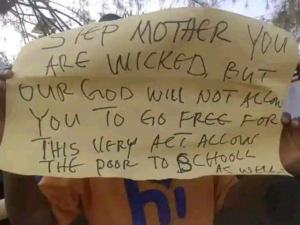 STEP MOTHER YOU
ARE WICKED, BUT
OUR GOD WILL NOT ALLOW
YOU TO GO FREE FOR
THIS VERY ACT. ALLOW
THE POOR TO SCHOOLL
AS WELL-
hi